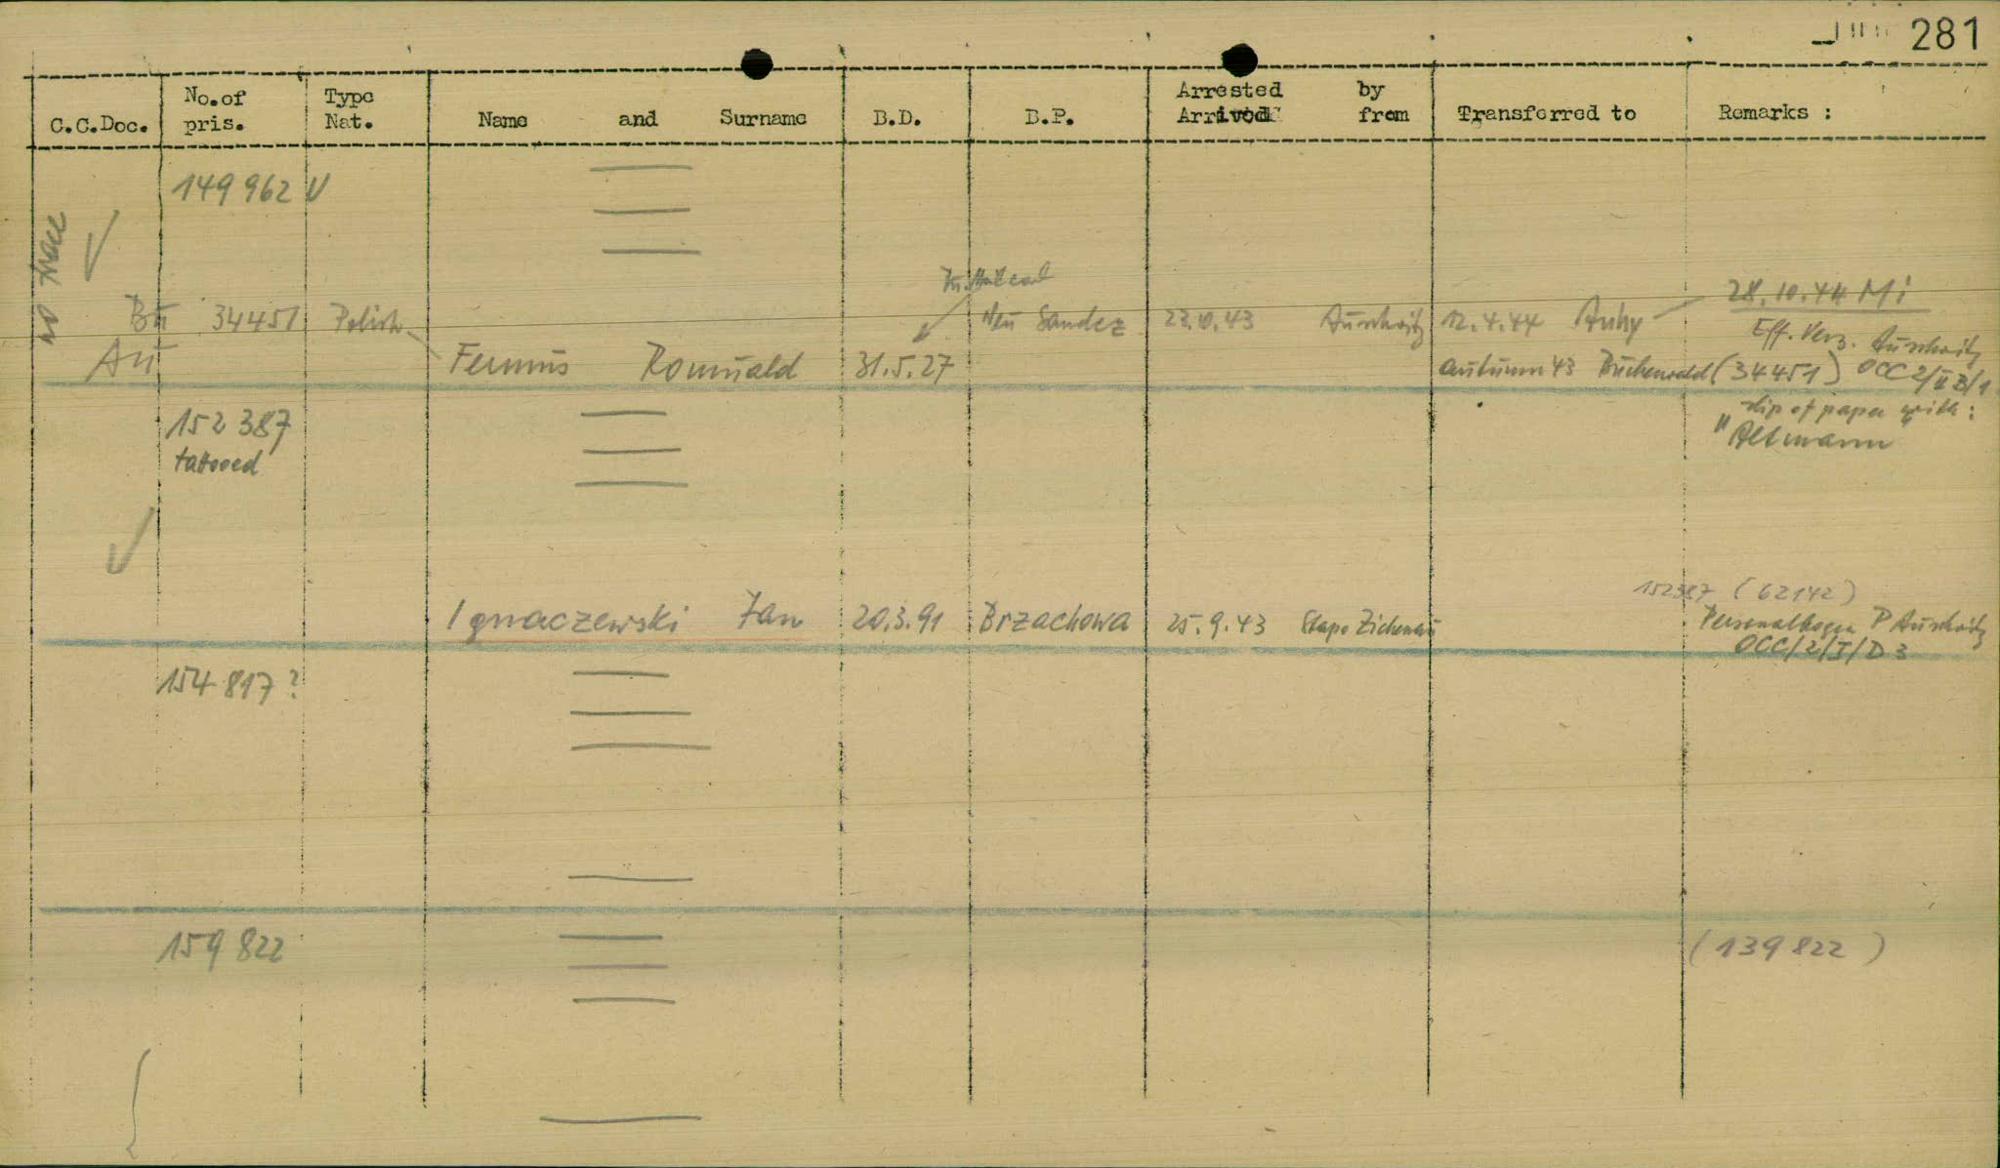 281
C.C.Doc. No.of pris. Type Nat. Name and Surname B.D. B.P. Arrested by Arrived from Transferred to Remarks :
149 962
no trace
Bu 34451 Polish Neu Sandez 23.10.43 Auschwitz 12.4.44 28.10.44 Mi
Eff. Verz. Auschwitz
Au Romuald 31.5.27 autumn 43 Buchenwald (34451) OCC 2/II B/1
152 387 slip of paper with:
tattooed "Altmann"
152387 (62142)
Ignaczewski Jan 20.3.91 Brzachowa 25.9.43 Stapo Zichenau Personalbogen P Auschwitz
OCC/2/I/D 3
154 817 ?
159 822 (139 822)